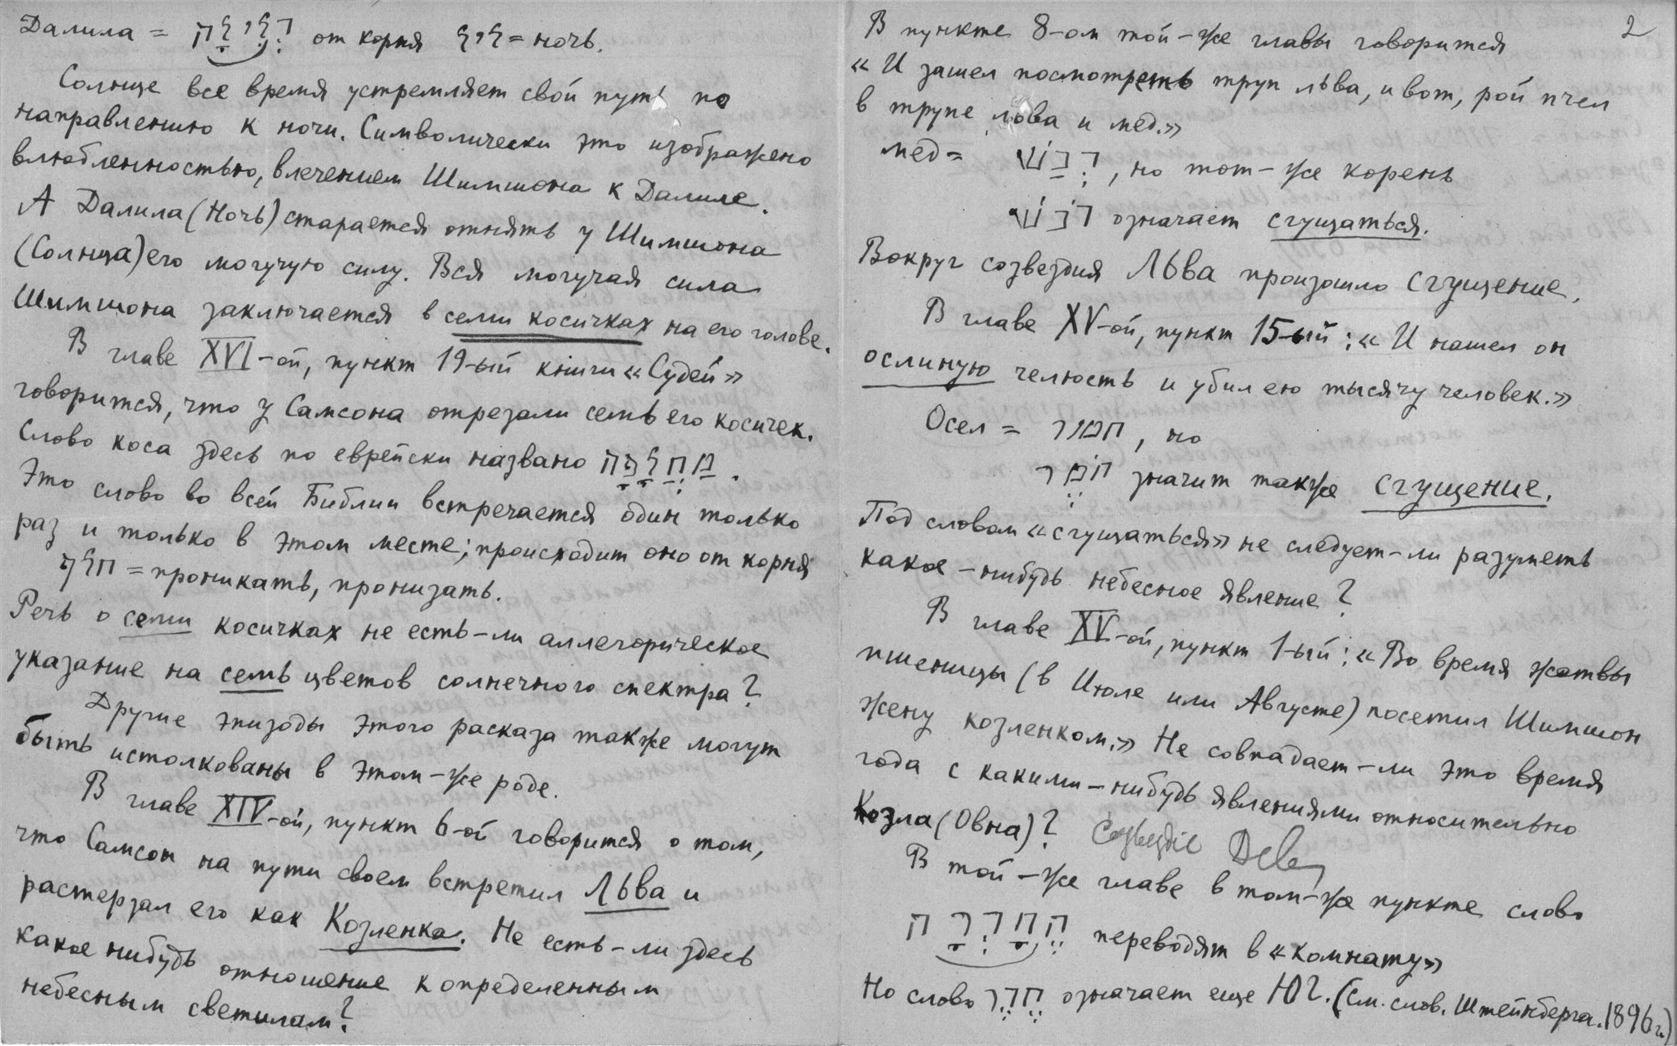 Далила = דְּלִילָה от корня ליל = ночь.
Солнце все время устремляет свой путь по
направлению к ночи. Символически это изображено
влюбленностью, влечением Шимшона к Далиле.
А Далила (Ночь) старается отнять у Шимшона
(Солнца) его могучую силу. Вся могучая сила
Шимшона заключается в семи косичках на его голове.
В главе XVI-ой, пункт 19-ый книги «Судей»
говорится, что у Самсона отрезали семь его косичек.
Слово коса здесь по еврейски названо מַחְלָפָה.
Это слово во всей Библии встречается один только
раз и только в этом месте; происходит оно от корня
חלף = проникать, пронизать.
Речь о семи косичках не есть-ли аллегорическое
указание на семь цветов солнечного спектра?
Другие эпизоды этого расказа также могут
быть истолкованы в этом-же роде.
В главе XIV-ой, пункт 6-ой говорится о том,
что Самсон на пути своем встретил Льва и
растерзал его как Козленка. Не есть-ли здесь
какое нибудь отношение к определенным
небесным светилам?
2
В пункте 8-ом той-же главы говорится
«И зашел посмотреть труп льва, и вот, рой пчел
в трупе льва и мед.»
мед = דְּבַשׁ, но тот-же корень
דבש означает сгущаться.
Вокруг созвездия Льва произошло сгущение.
В главе XV-ой, пункт 15-ый: «И нашел он
ослиную челюсть и убил ею тысячу человек.»
Осел = חמור, но
חֹמֶר значит также сгущение.
Под словом «сгущаться» не следует-ли разуметь
какое-нибудь небесное явление?
В главе XV-ой, пункт 1-ый: «Во время жатвы
пшеницы (в Июле или Августе) посетил Шимшон
жену козленком.» Не совпадает-ли это время
года с какими-нибудь явлениями относительно
Козла (Овна)? Созвездіе Девы
В той-же главе в том-же пункте слово
הֶחָדְרָה переводят в «комнату»
Но слово חֶדֶר означает еще Юг. (См. слов. Штейнберга. 1896 г.)